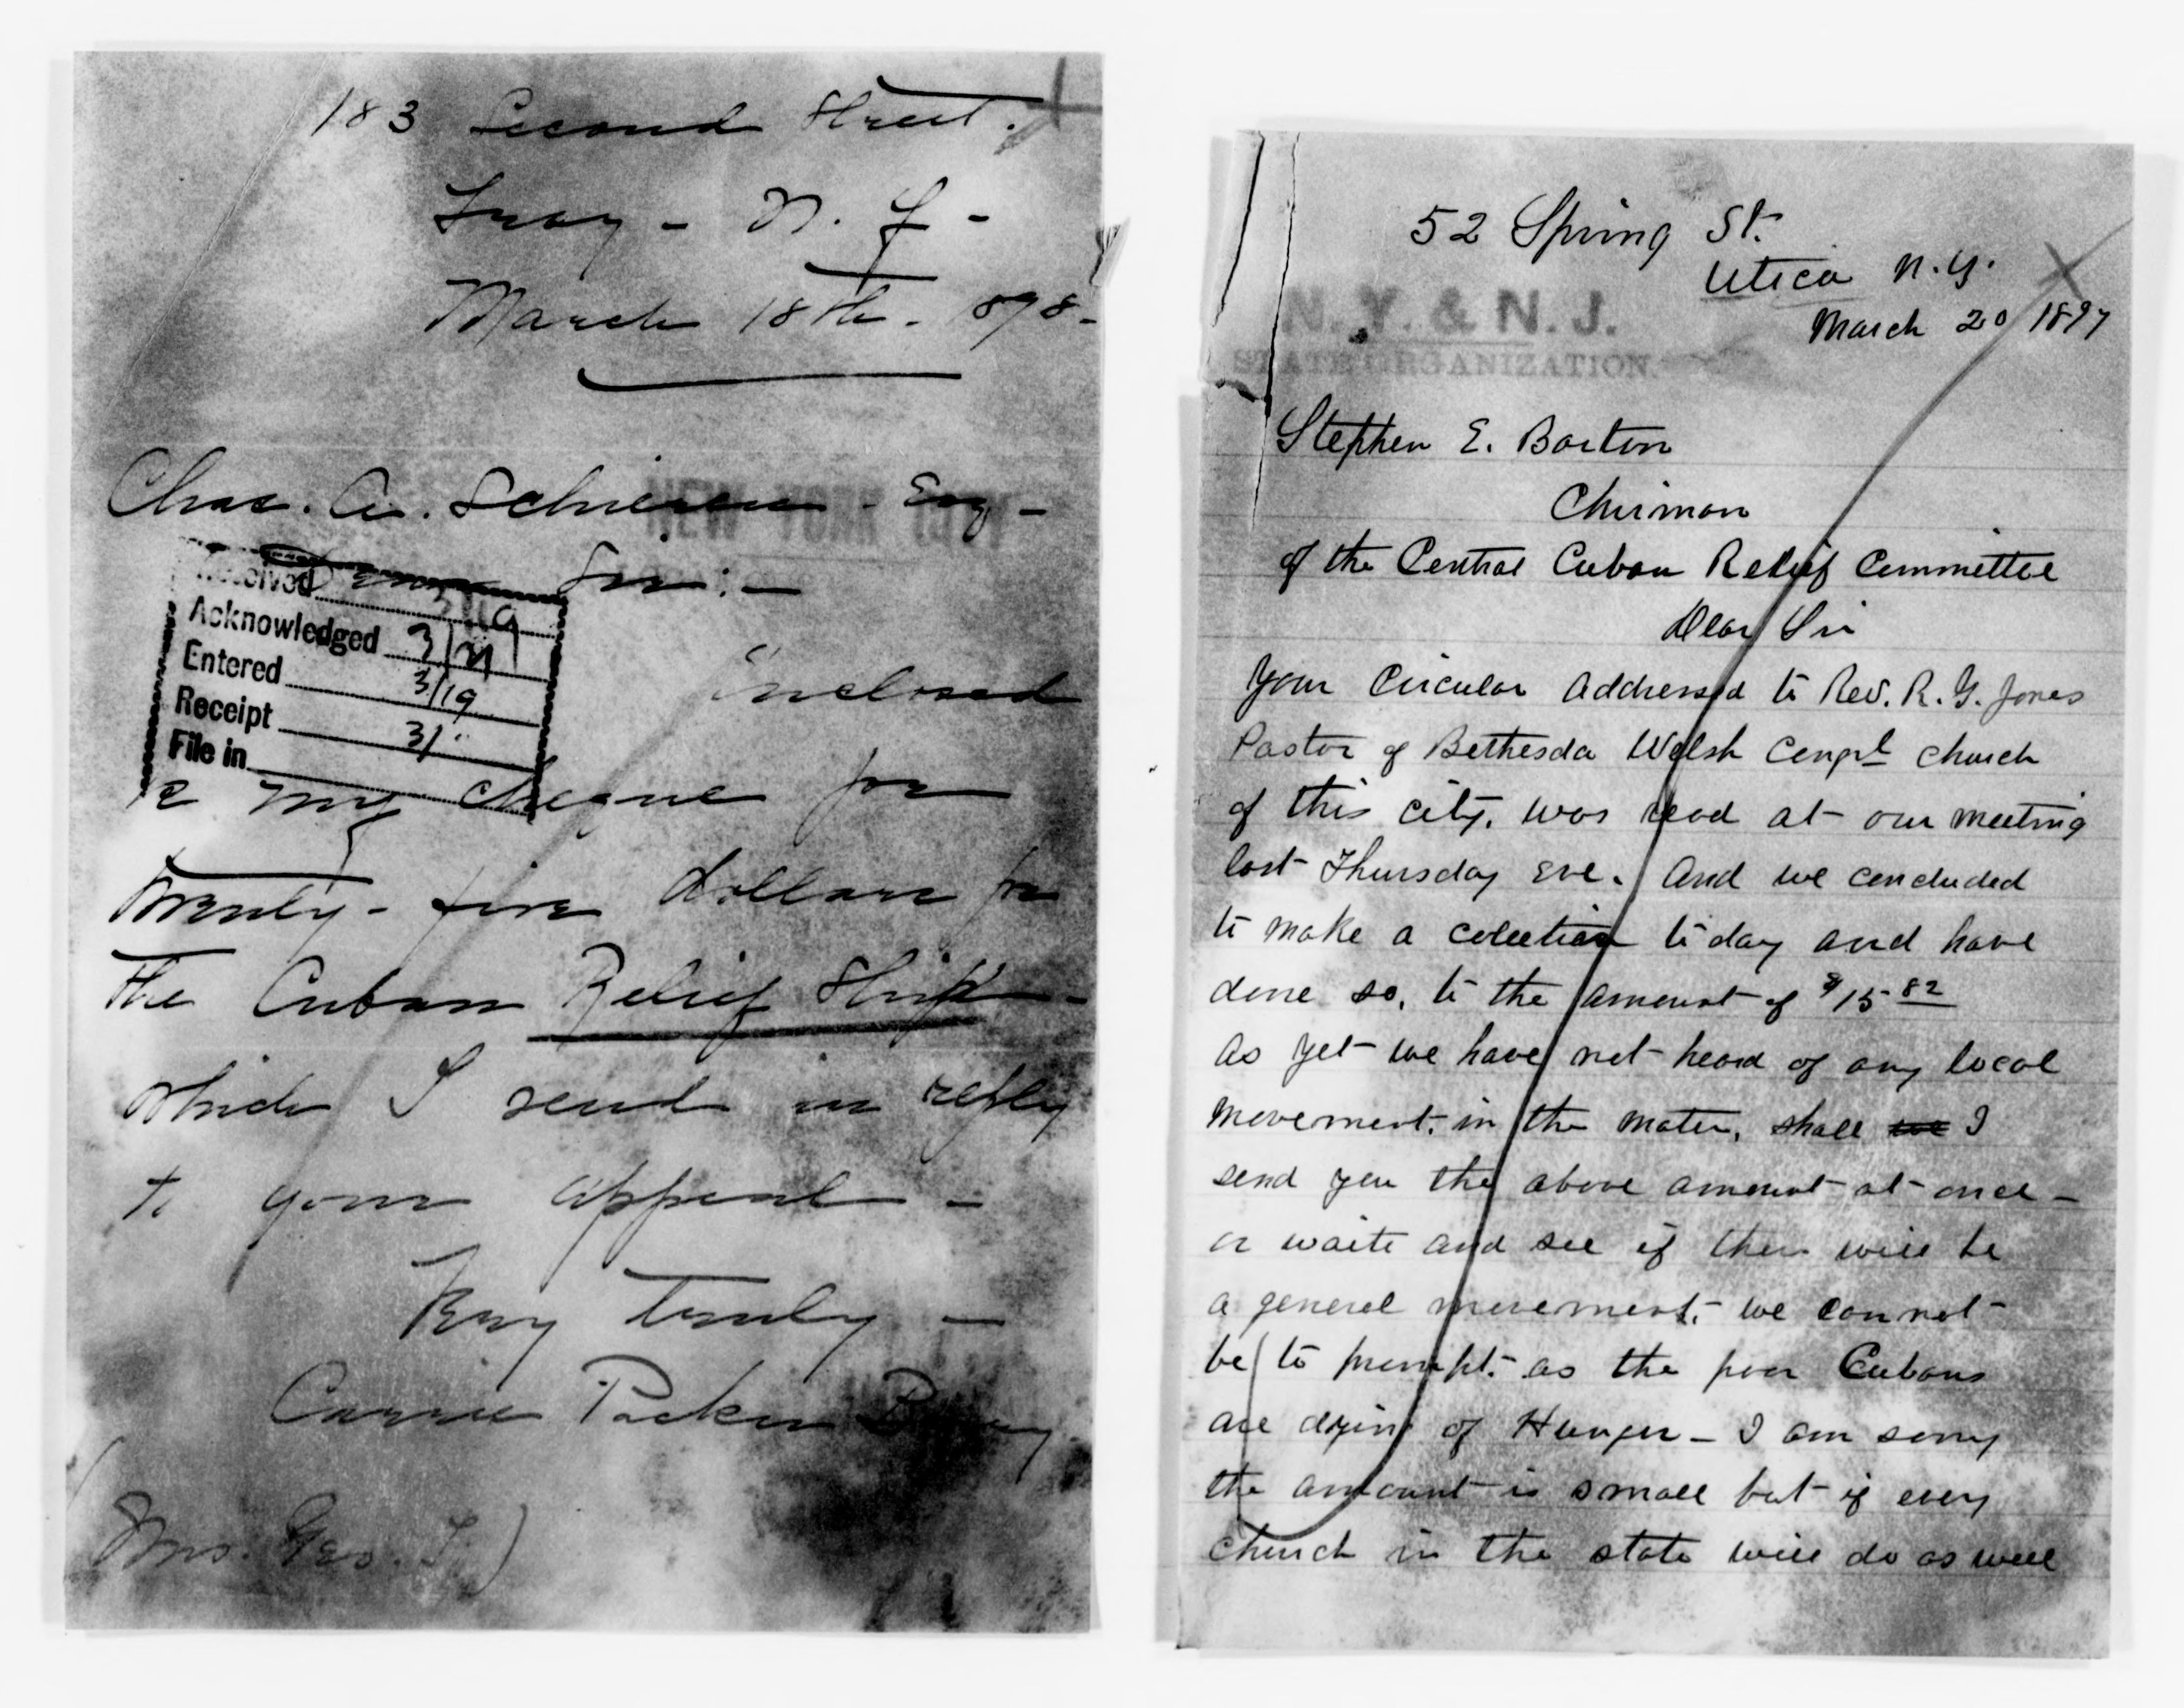 183 Second Street.
Troy - N. Y -
March 18th. 1898-
Chas. A. Schieren - Esq -
NEW YORK CITY
Dear Sir: -
Received 3/19
Acknowledged 3/21
Entered 3/19
Receipt 3/"
File in
Enclosed
is my cheque for
twenty-five dollars for
The Cuban Relief Ship -
which I send in reply
to your appeal -
Very truly -
Carrie Packer
(Mrs. Geo. T)
52 Spring St.
Utica N.Y.
March 20 1897
N.Y. & N.J.
STATE ORGANIZATION.
Stephen E. Barton
Chirman
of the Central Cuban Relief Committee
Dear Sir
Your Circular Addressed to Rev. R. G. Jones
Pastor of Bethesda Welsh Congl Church
of this city, was read at our meeting
last Thursday Eve. And we concluded
to make a colection to day and have
done so, to the amount of $15 82
As yet we have not heard of any local
movement, in the mater, shall we I
send you the above amount at once -
or waite and see if ther will be
a general movement, we can not
be to prompt. as the poor Cubans
are dying of Hunger - I am sorry
the amount is small but if every
church in the state will do as well